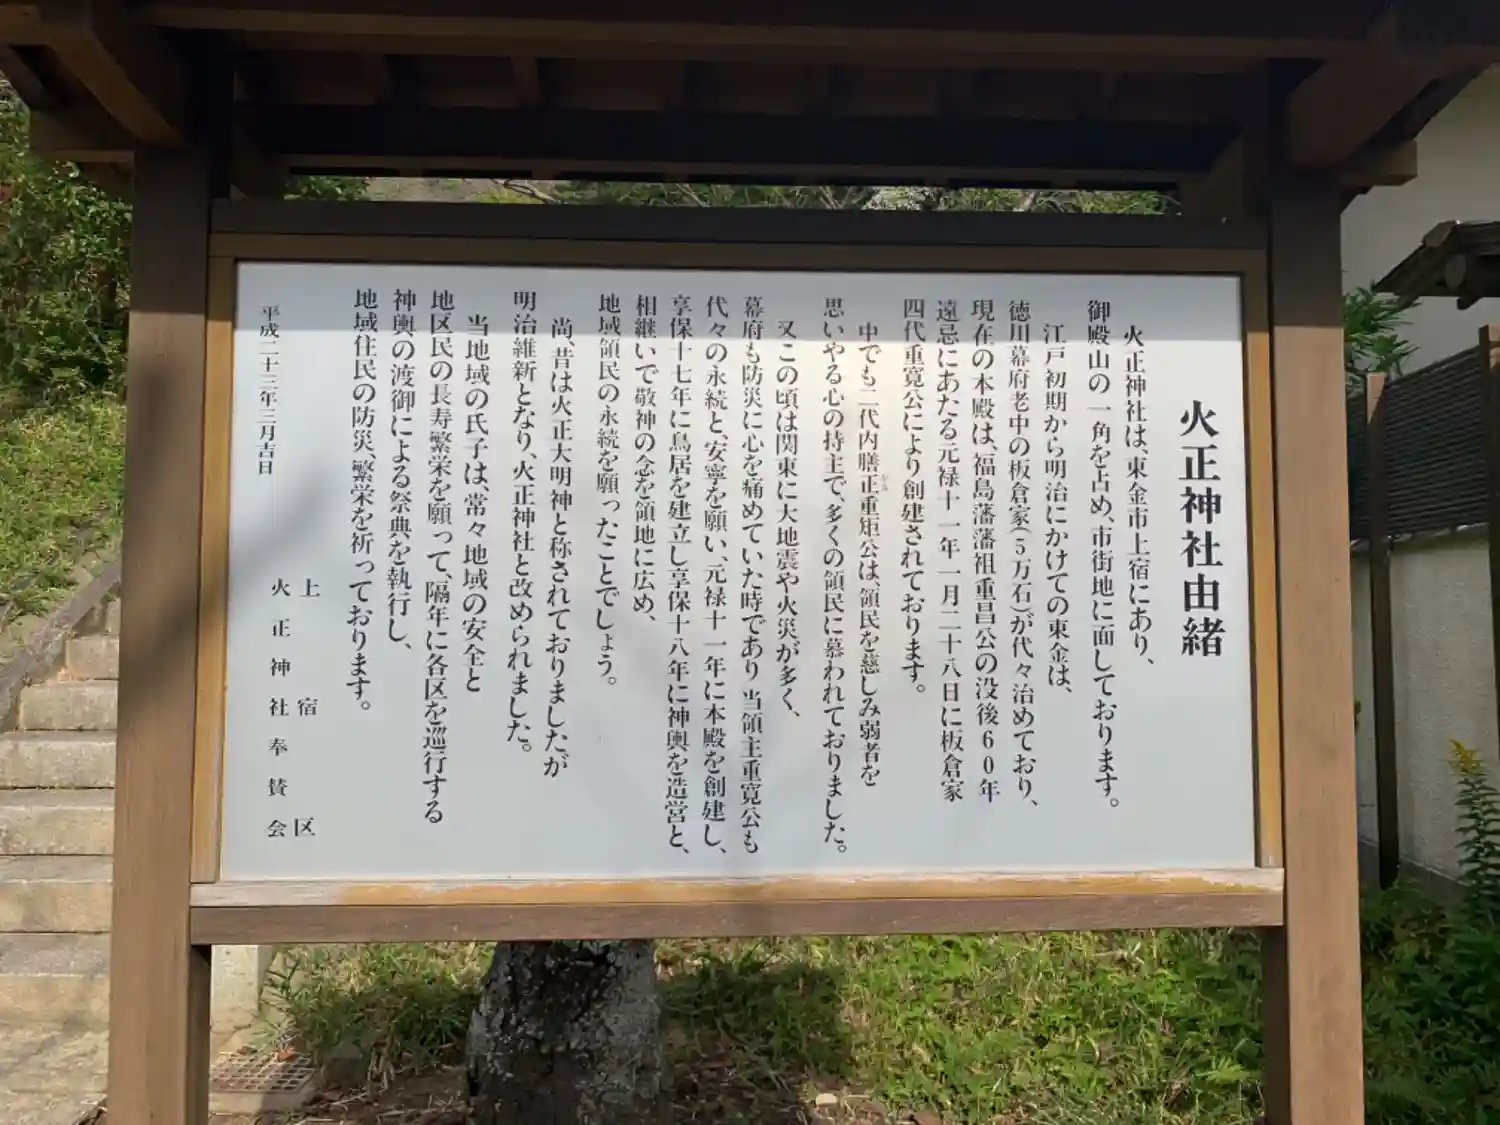 火正神社由緒
火正神社は、東金市上宿にあり、
御殿山の一角を占め、市街地に面しております。
江戸初期から明治にかけての東金は、
徳川幕府老中の板倉家(5万石)が代々治めており、
現在の本殿は、福島藩藩祖重昌公の没後60年
遠忌にあたる元禄十一年一月二十八日に板倉家
四代重寛公により創建されております。
中でも二代内膳正重矩公は、領民を慈しみ弱者を
思いやる心の持主で、多くの領民に慕われておりました。
又この頃は関東に大地震や火災が多く、
幕府も防災に心を痛めていた時であり 当領主重寛公も
代々の永続と、安寧を願い、元禄十一年に本殿を創建し、
享保十七年に鳥居を建立し享保十八年に神輿を造営と、
相継いで敬神の念を領地に広め、
地域領民の永続を願ったことでしょう。
尚、昔は火正大明神と称されておりましたが
明治維新となり、火正神社と改められました。
当地域の氏子は、常々地域の安全と
地区民の長寿繁栄を願って、隔年に各区を巡行する
神輿の渡御による祭典を執行し、
地域住民の防災、繁栄を祈っております。
平成二十三年三月吉日
上宿区
火正神社奉賛会